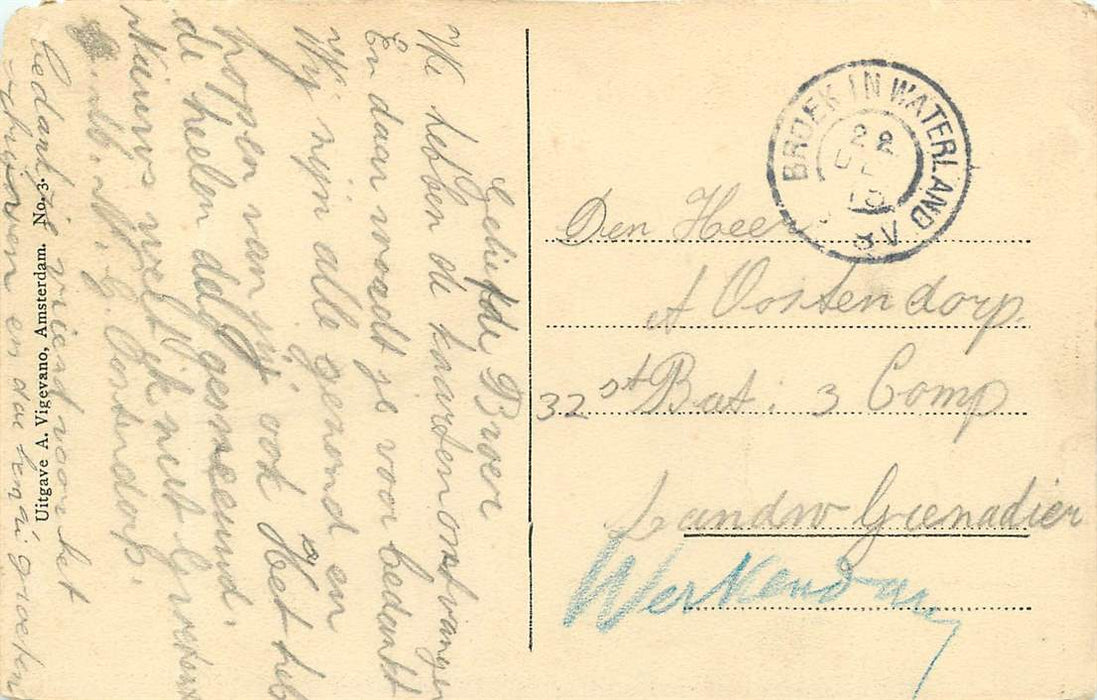 Geliefde Broer
We hebben de kaarten ontvangen
En daar wordt je voor bedankt
Wij zijn alle gezond en
hoppen van jou ook Het heb
de heelen dag geregend.
Nieuws weet ik niet Groetend
G. Oostendorp.
bedankt vriend voor het
schrijven en de groeten
Uitgave A. Vigevano, Amsterdam. No. 3.
BROEK IN WATERLAND
22
Den Heer
A Oostendorp.
32 st Bat: 3 Comp
Landw Grenadier
Werkendam